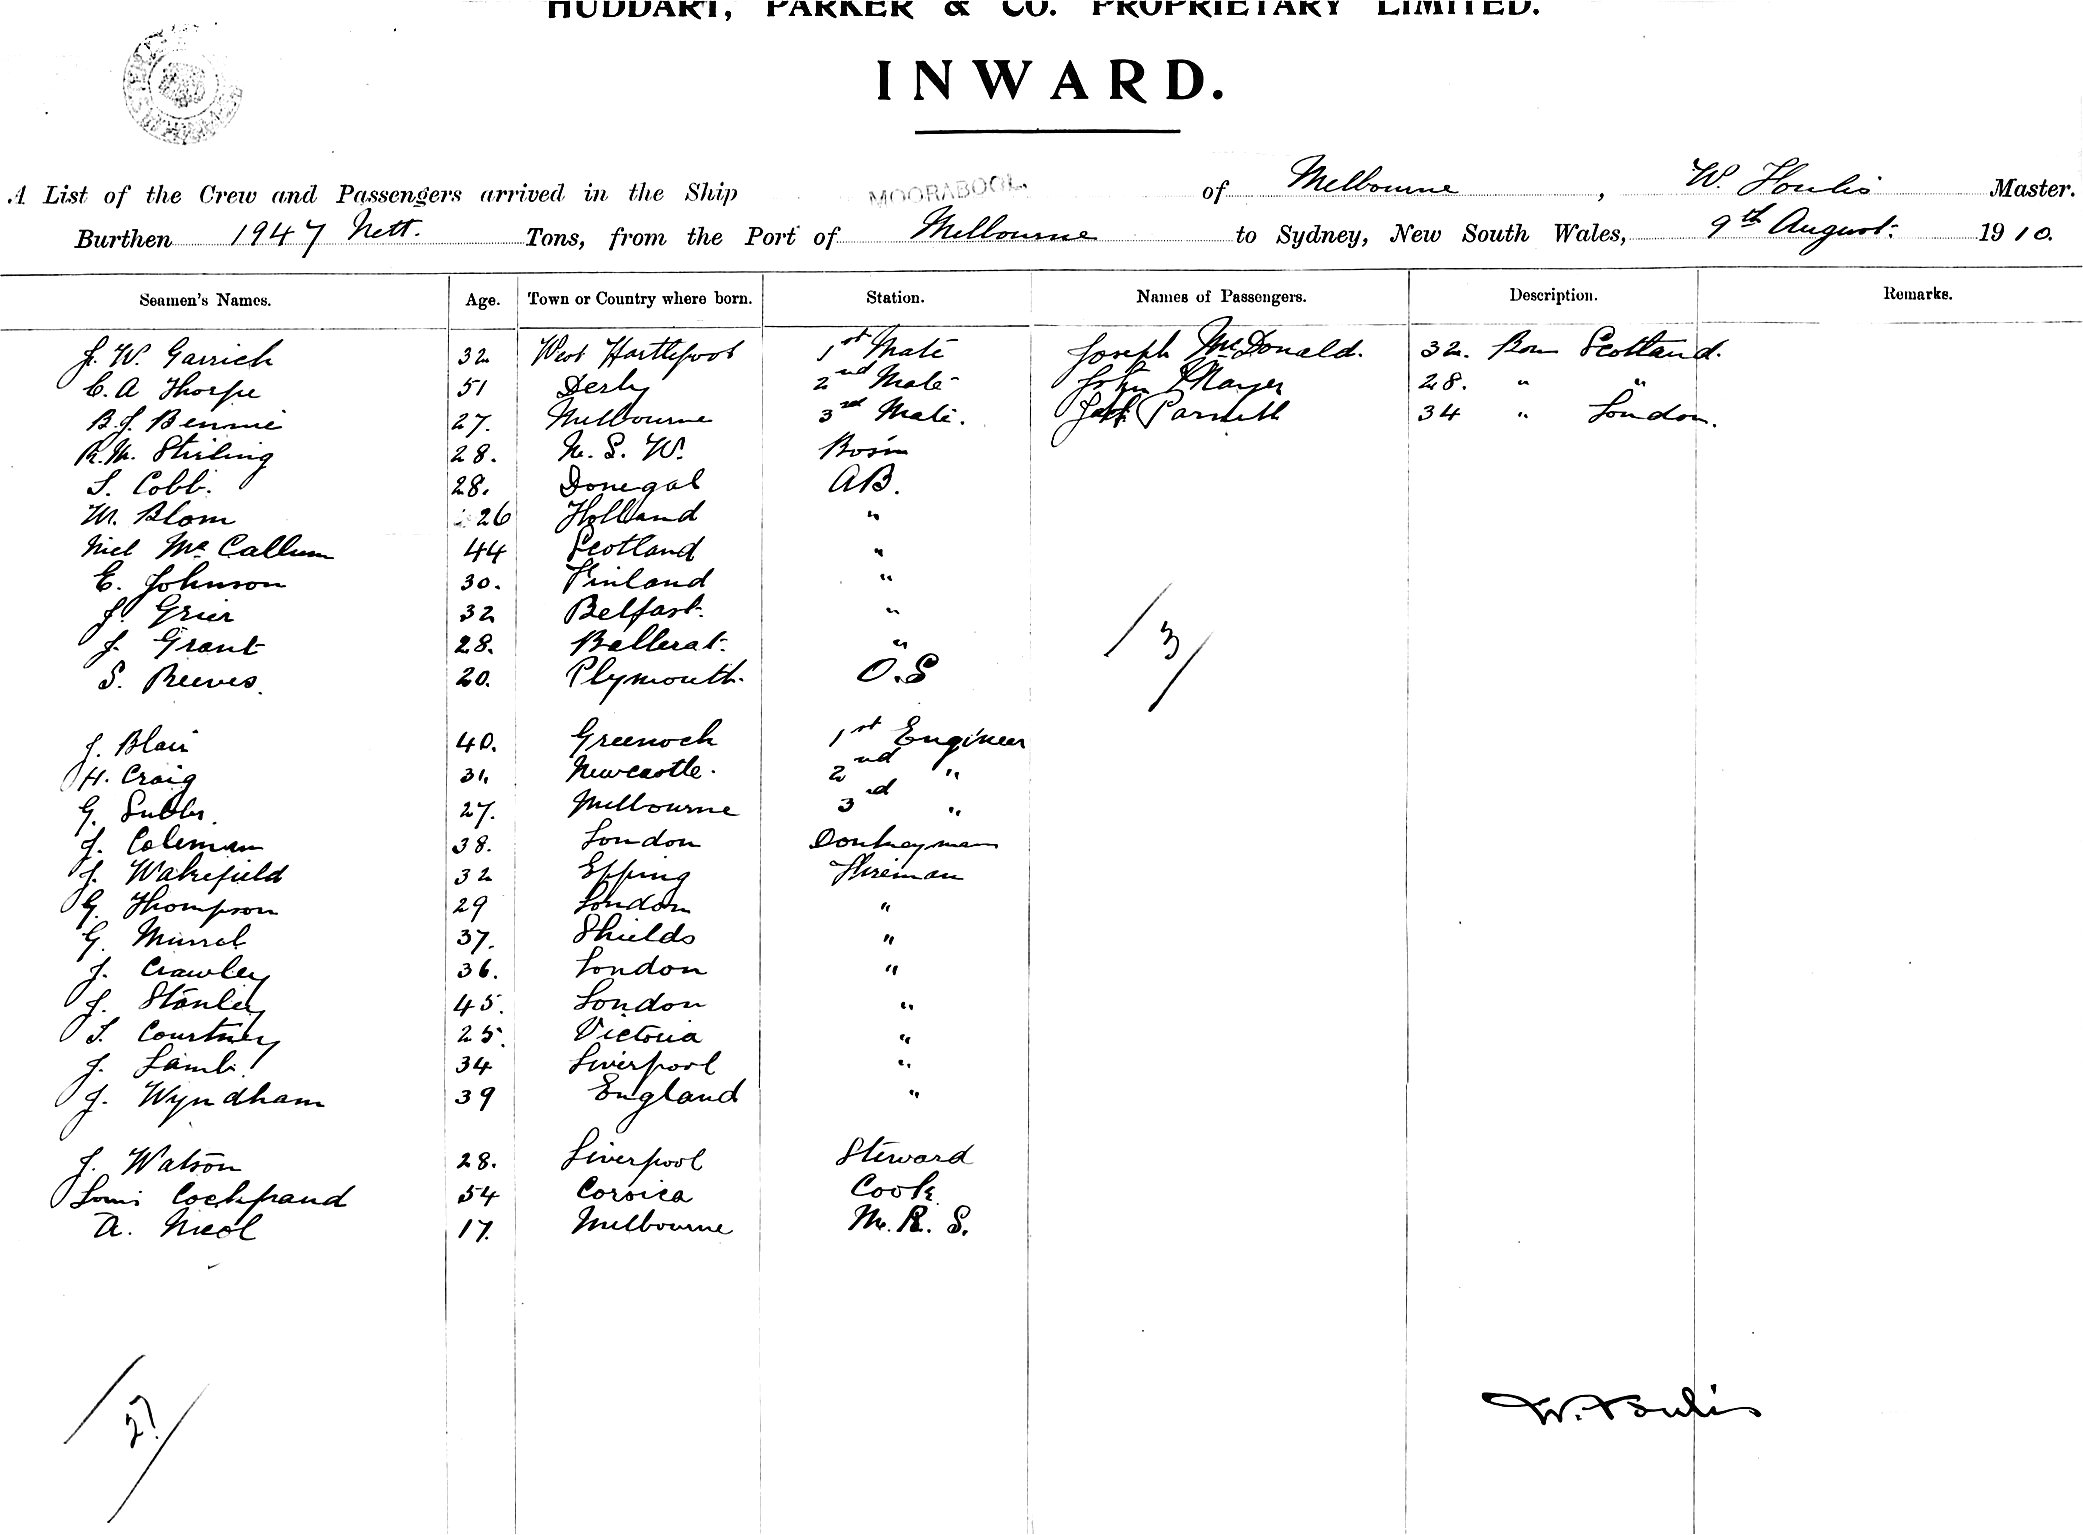 HUDDART, PARKER & CO. PROPRIETARY LIMITED.
INWARD.
A List of the Crew and Passengers arrived in the Ship MOORABOOL. of Melbourne, W. Master.
Burthen 1947 Nett. Tons, from the Port of Melbourne to Sydney, New South Wales, 9th August. 1910.
Seamen's Names. Age. Town or Country where born. Station. Names of Passengers. Description. Remarks.
J. W. Garrich 32 West Hartlepool 1st Mate Joseph McDonald. 32. Born Scotland.
C. A Thorpe 51 Derby 2nd Mate John 28. " "
B. J. Bennie 27. Melbourne 3rd Mate. Jack Parnell 34 " London.
R. M. Stirling 28. N. S. W. Bosun
S. Cobb. 28. Donegal AB.
W. Blom 26 Holland "
Niel McCallum 44 Scotland "
E. Johnson 30. Finland "
J. Grier 32 Belfast. "
J. Grant 28. Ballerat. "
S. Reeves. 20. Plymouth. O.S
J. Blair 40. Greenock 1st Engineer
H. Craig 31. Newcastle. 2nd "
G. 27. Melbourne 3rd "
J. Coleman 38. London Donkeyman
J. Wakefield 32 Epping Fireman
G. Thompson 29 London "
G. 37. Shields "
J. Crawley 36. London "
J. Stanley 45. London "
S. Courtney 25. Victoria "
J. Lamb. 34 Liverpool "
J. Wyndham 39 England "
J. Watson 28. Liverpool Steward
Louis 54 Corsica Cook
A. Nicol 17. Melbourne M. R. S.
/3/
/27/
W.